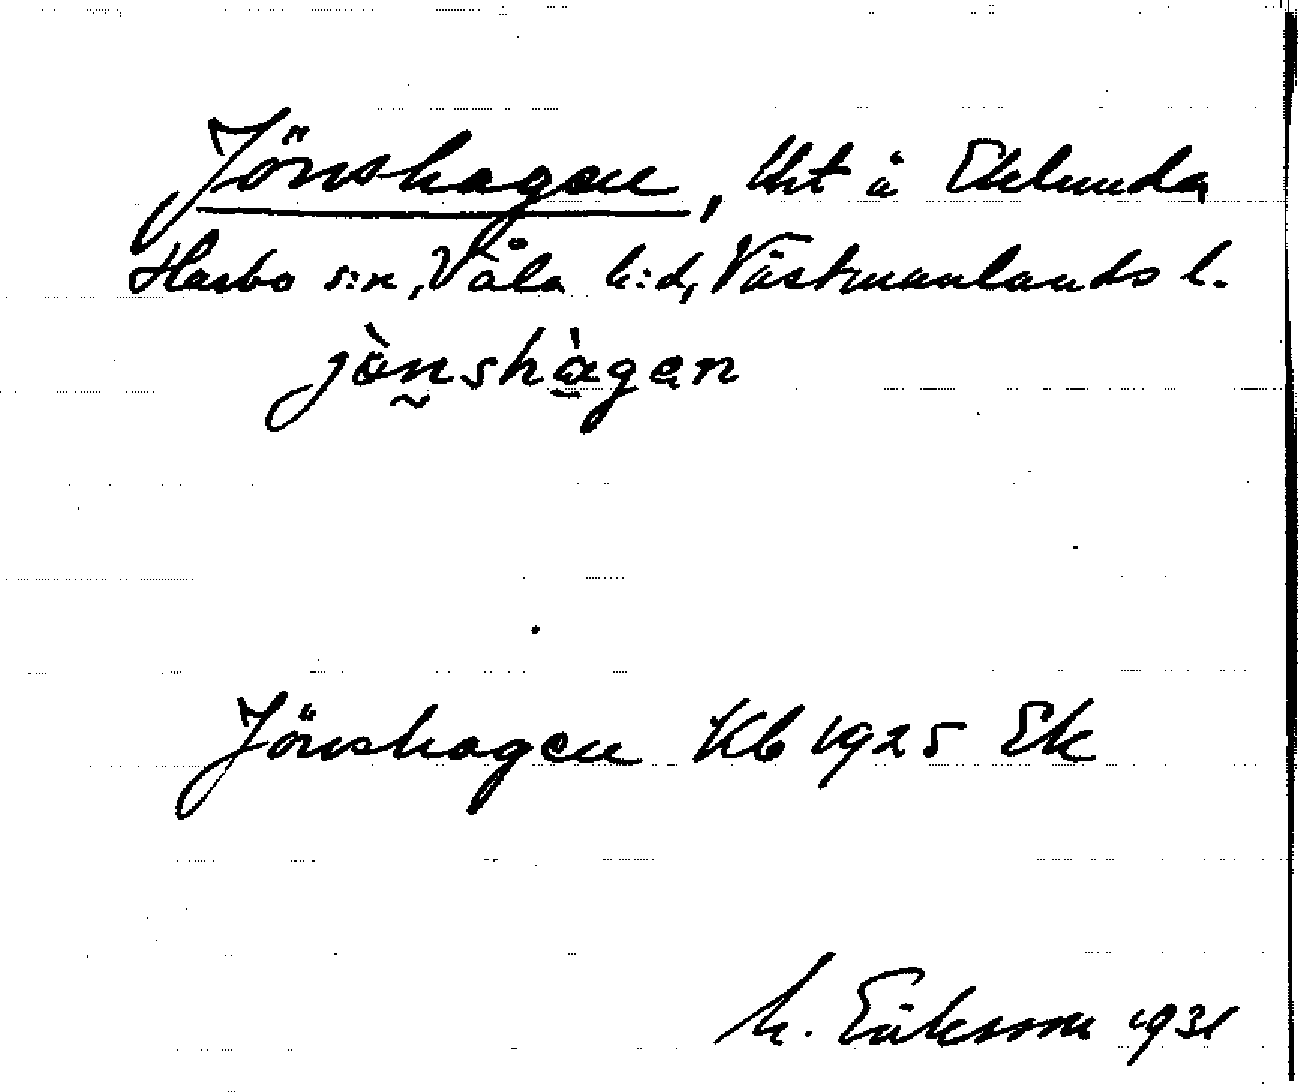 Jönshagen, lht å Eklunda,
Harbo s:n, Våla h:d, Västmanlands l.
jö̀nshàgen
Jönshagen Kb 1925 Ek
M. Eriksson 1931